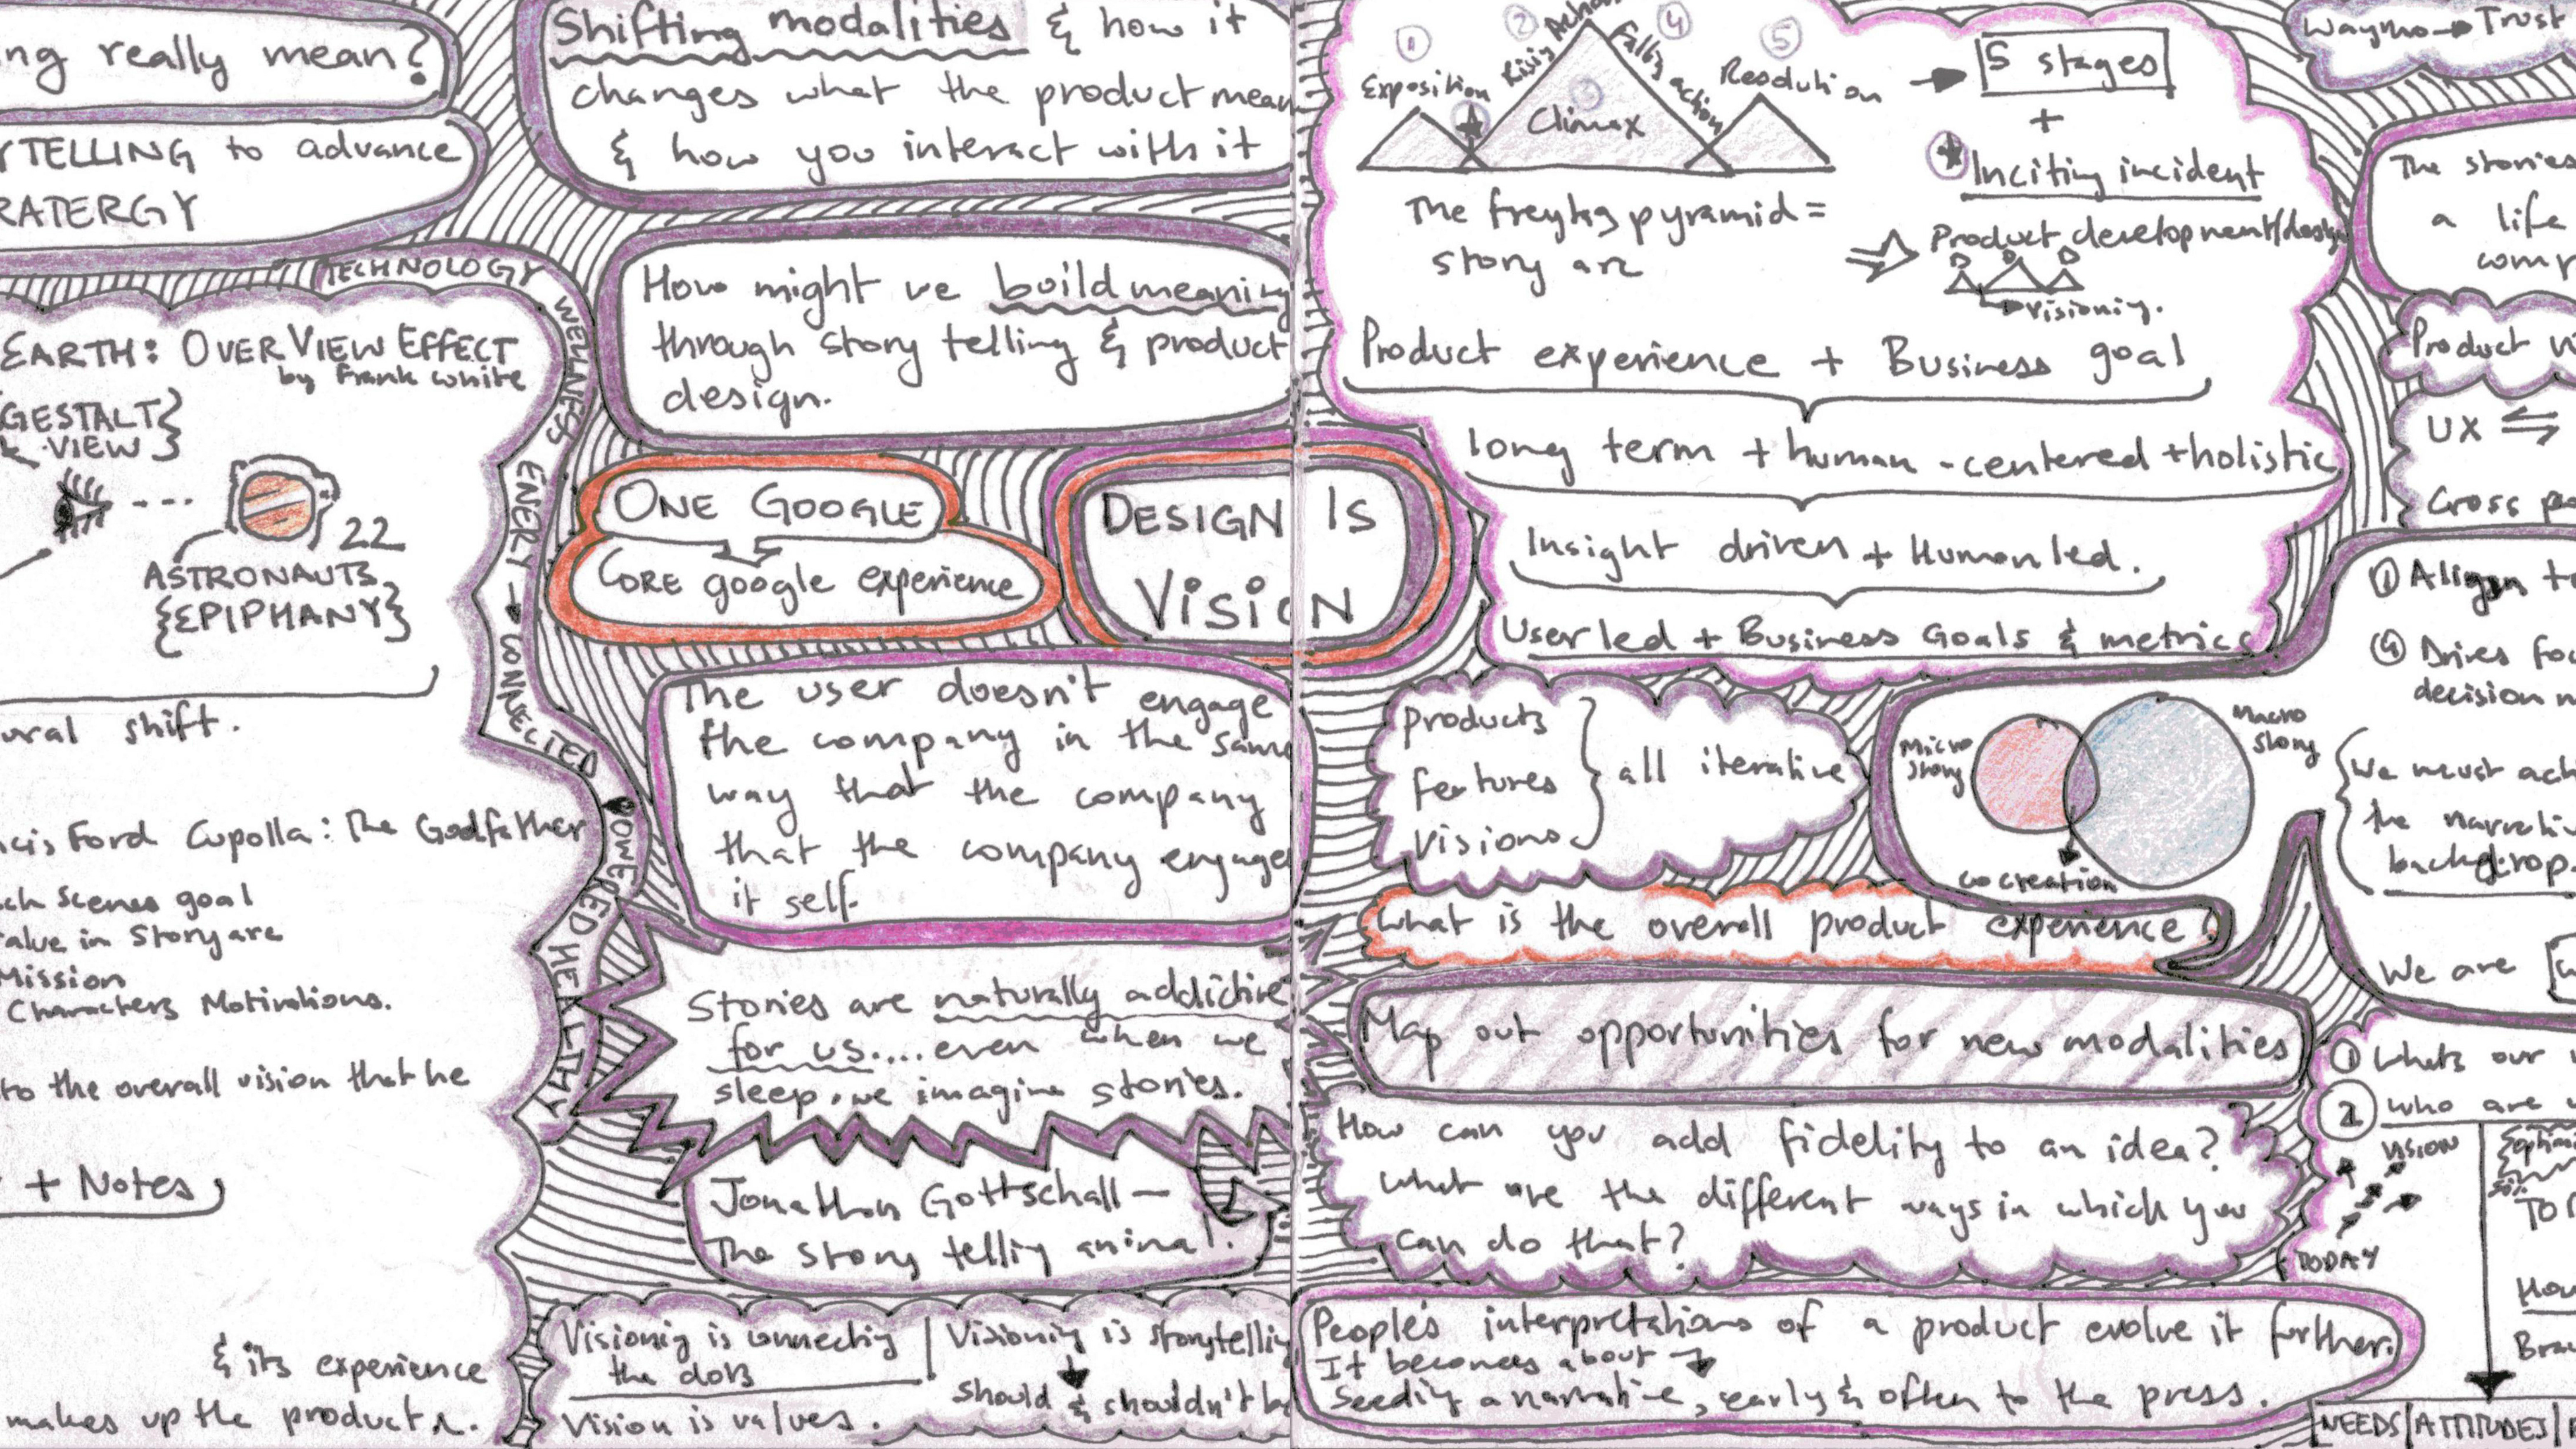 ng really mean?
YTELLING to advance
RATERGY
TECHNOLOGY WELLNESS ENERGY → CONNECTED POWERED HEALTHY
EARTH: OVERVIEW EFFECT
by Frank White
GESTALT}
VIEW}
22
ASTRONAUTS
{EPIPHANY}
ural shift.
cis Ford Cupolla: The Godfather
ch scenes goal
alue in Story arc
Mission
Characters Motivations.
to the overall vision that he
+ Notes
& its experience
makes up the product
Shifting modalities & how it
changes what the product mean
& how you interact with it
How might we build meaning
through story telling & product
design.
ONE GOOGLE
CORE google experience
DESIGN IS
VISION
The user doesn't engage
the company in the same
way that the company
that the company engage
it self.
Stories are naturally addictive
for us.... even when we
sleep, we imagine stories.
Jonathan Gottschall —
The story telling animal.
Visioning is connecting
the dots
Vision is values.
Visioning is storytelling
should & shouldn't be
1 2 3 4 5
Exposition Rising Action Climax Falling action Resolution → 5 stages
+
Inciting incident
The freytag pyramid =
story arc
Product development/design
visioning.
Product experience + Business goal
long term + human-centered + holistic
Insight driven + Human led.
User led + Business Goals & metrics
products
features
visions
} all iterative
Micro
Story
Macro
Story
co creation
What is the overall product experience?
Map out opportunities for new modalities
How can you add fidelity to an idea?
What are the different ways in which you
can do that?
People's interpretations of a product evolve it further.
It becomes about →
Seeding a narrative, early & often to the press.
Waymo → Trust
The stories
a life
comp
Product vi
UX ⇋
Cross
① Align to
④ Drives foc
decision m
We must
the narrati
backdrop.
We are
① Whats our
② who are
VISION
TODAY
TO
How
Bra
NEEDS|ATTITUDES|